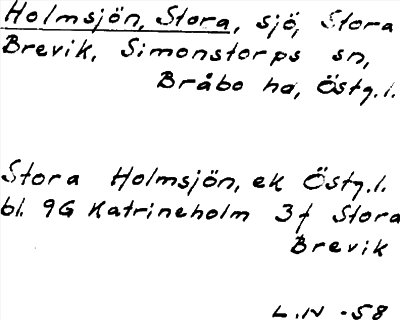 Holmsjön, Stora, sjö, Stora
Brevik, Simonstorps sn,
Bråbo hd, Östg.l.
Stora Holmsjön, ek Östg.l.
bl. 9G Katrineholm 3f Stora
Brevik
L.N -58